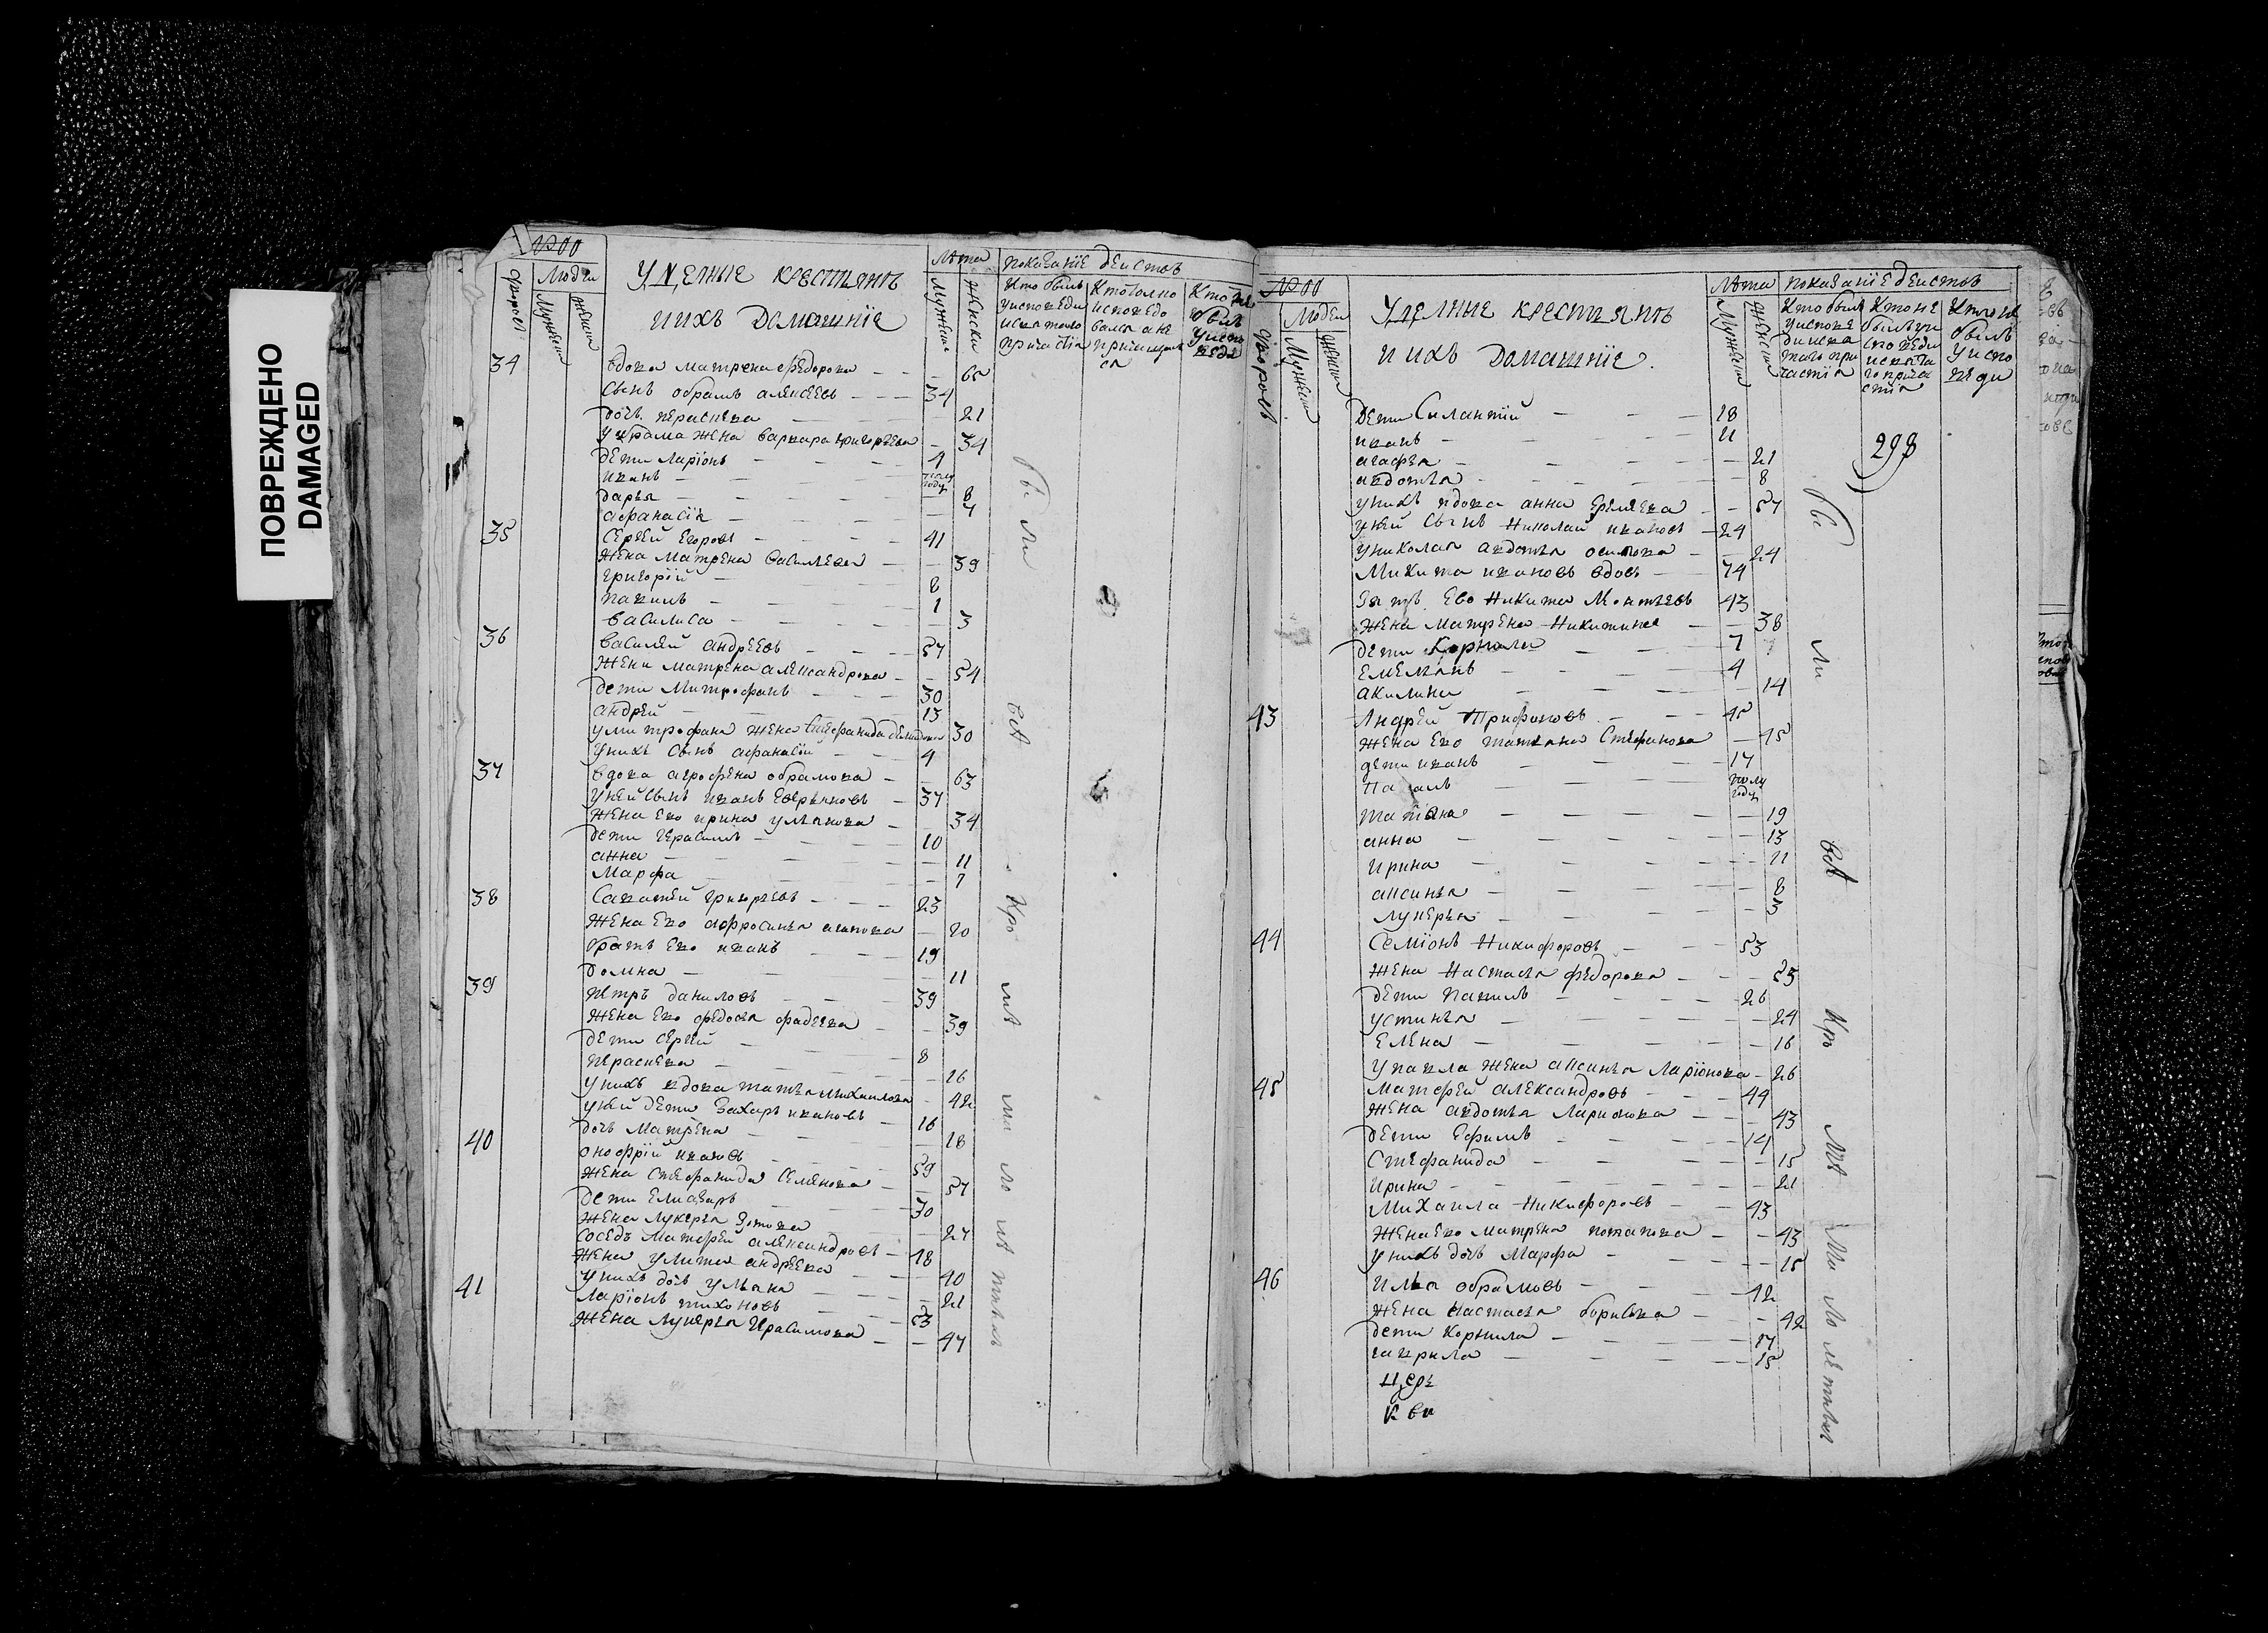 ПОВРЕЖДЕНО
DAMAGED
№00
дворовъ
Люди
Мужеск
женск
Уделные крестьянъ
иихъ Домашнїе
Лѣта
Мужеск
Женски
показанїе деиствъ
Кто былъ
уисповеди
исвятаго
причастїя
Ктотолко
исповедо
вался ане
причищал
ся
Кто не
былъ
уиспо
веди
34
вдова матрена федорова 65
сынъ обрамъ алексеевъ 34
дочь параскева 21
уобрама жена варвара григорьева 34
дети ларїонъ 4
иванъ полу году
дарья 8
афанасїя 4
35
Сергѣй Егоровъ 41
жена Матрена васильева 39
григорїй 8
павилъ 1
василиса 3
36
василей андреевъ 57
жена матрена александрова 54
дети Митрофанъ 30
андрей 13
умитрофана жена Стефанида 30
унихъ сынъ афанасїй 4
37
вдова агрофена обрамова 63
унейсынъ иванъ Еверьяновъ 37
жена Ево ирина ульянова 34
дети герасимъ 10
анна 11
Марфа 7
38
Саватей григорьевъ 23
жена Ево афросинья агапова 20
братъ Ево иванъ 19
домна 11
39
петръ даниловъ 39
жена Ево федосья фадеева 39
дети Сергей 8
параскева 16
унихъ вдова татьяна михаилова 42
уней дети Захаръ ивановъ 16
дочь Матрена 18
40
онофрїй ивановъ 59
жена Стефанида Семенова 57
дети Елиазаръ 30
жена лукерья Зотова 27
соседъ Матфей александровъ 48
жена улита андреева 40
унихъ дочь ульяна 21
41
Ларїонъ тихоновъ 53
жена лукерья Герасимова 47
бы ли
вси
Кро
мѣ
ма
ло
лѣ
тныхъ
№00
дворовъ
Люди
Мужеск
женск
Уделные крестьянъ
и ихъ домашнїе.
Лѣта
Мужеск
женски
показанїе деиствъ
Кто былъ
уиспове
ди исвя
таго при
частїя
Кто не
былъ уи
споведи
исвята
го прича
стїя
Кто не
былъ
уиспо
веди
298
Дети Силантїй 18
иванъ 11
агафья 21
авдотья 8
унихъ вдова анна Еремеева 57
уней сынъ Николай ивановъ 24
униколая авдотья осипова 24
Микита ивановъ вдовъ 74
Зять Ево Никита Моисеевъ 43
жена Матрена Никитина 38
дети Корнила 7
Емельянъ 4
акилина 14
43
Андрей Трифоновъ 45
жена Ево татьяна Стефанова 45
дети иванъ 17
Павилъ полу году
татїяна 19
анна 13
ирина 11
аксинья 8
лукерья 3
44
Семїонъ Никифоровъ 53
жена Настасья федорова 53
дети павилъ 26
устинья 24
Елена 16
упавла жена аксинья Ларїонова 26
45
Матфей александровъ 44
жена авдотья Ларионова 43
дети Ефимъ 14
Стефанида 15
Ирина 21
Михаила Никифоровъ 43
жена Ево Матрена потапова 43
унихъ дочь Марфа 15
46
Илья обрамовъ 42
жена настасья борисова 42
дети Корнила 17
гаврила 15
Церь
к ви
бы
ли
все
Кро
мѣ
Ма
ло
лѣ
тныхъ